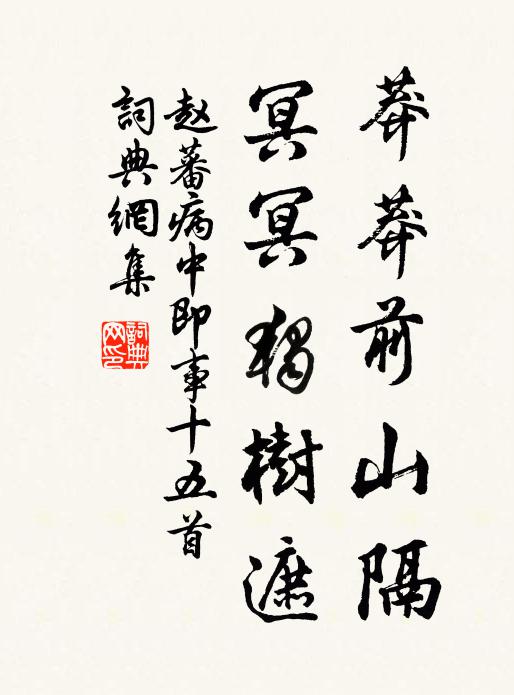 莽莽前山隔
冥冥獨樹遮
赵蕃病中即事十五首
詞典網集
詞典网印